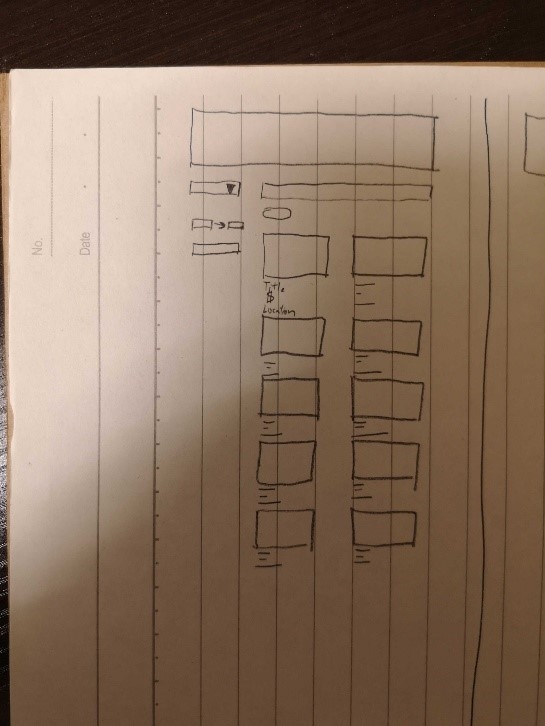 No.
Date
Title
$
Location